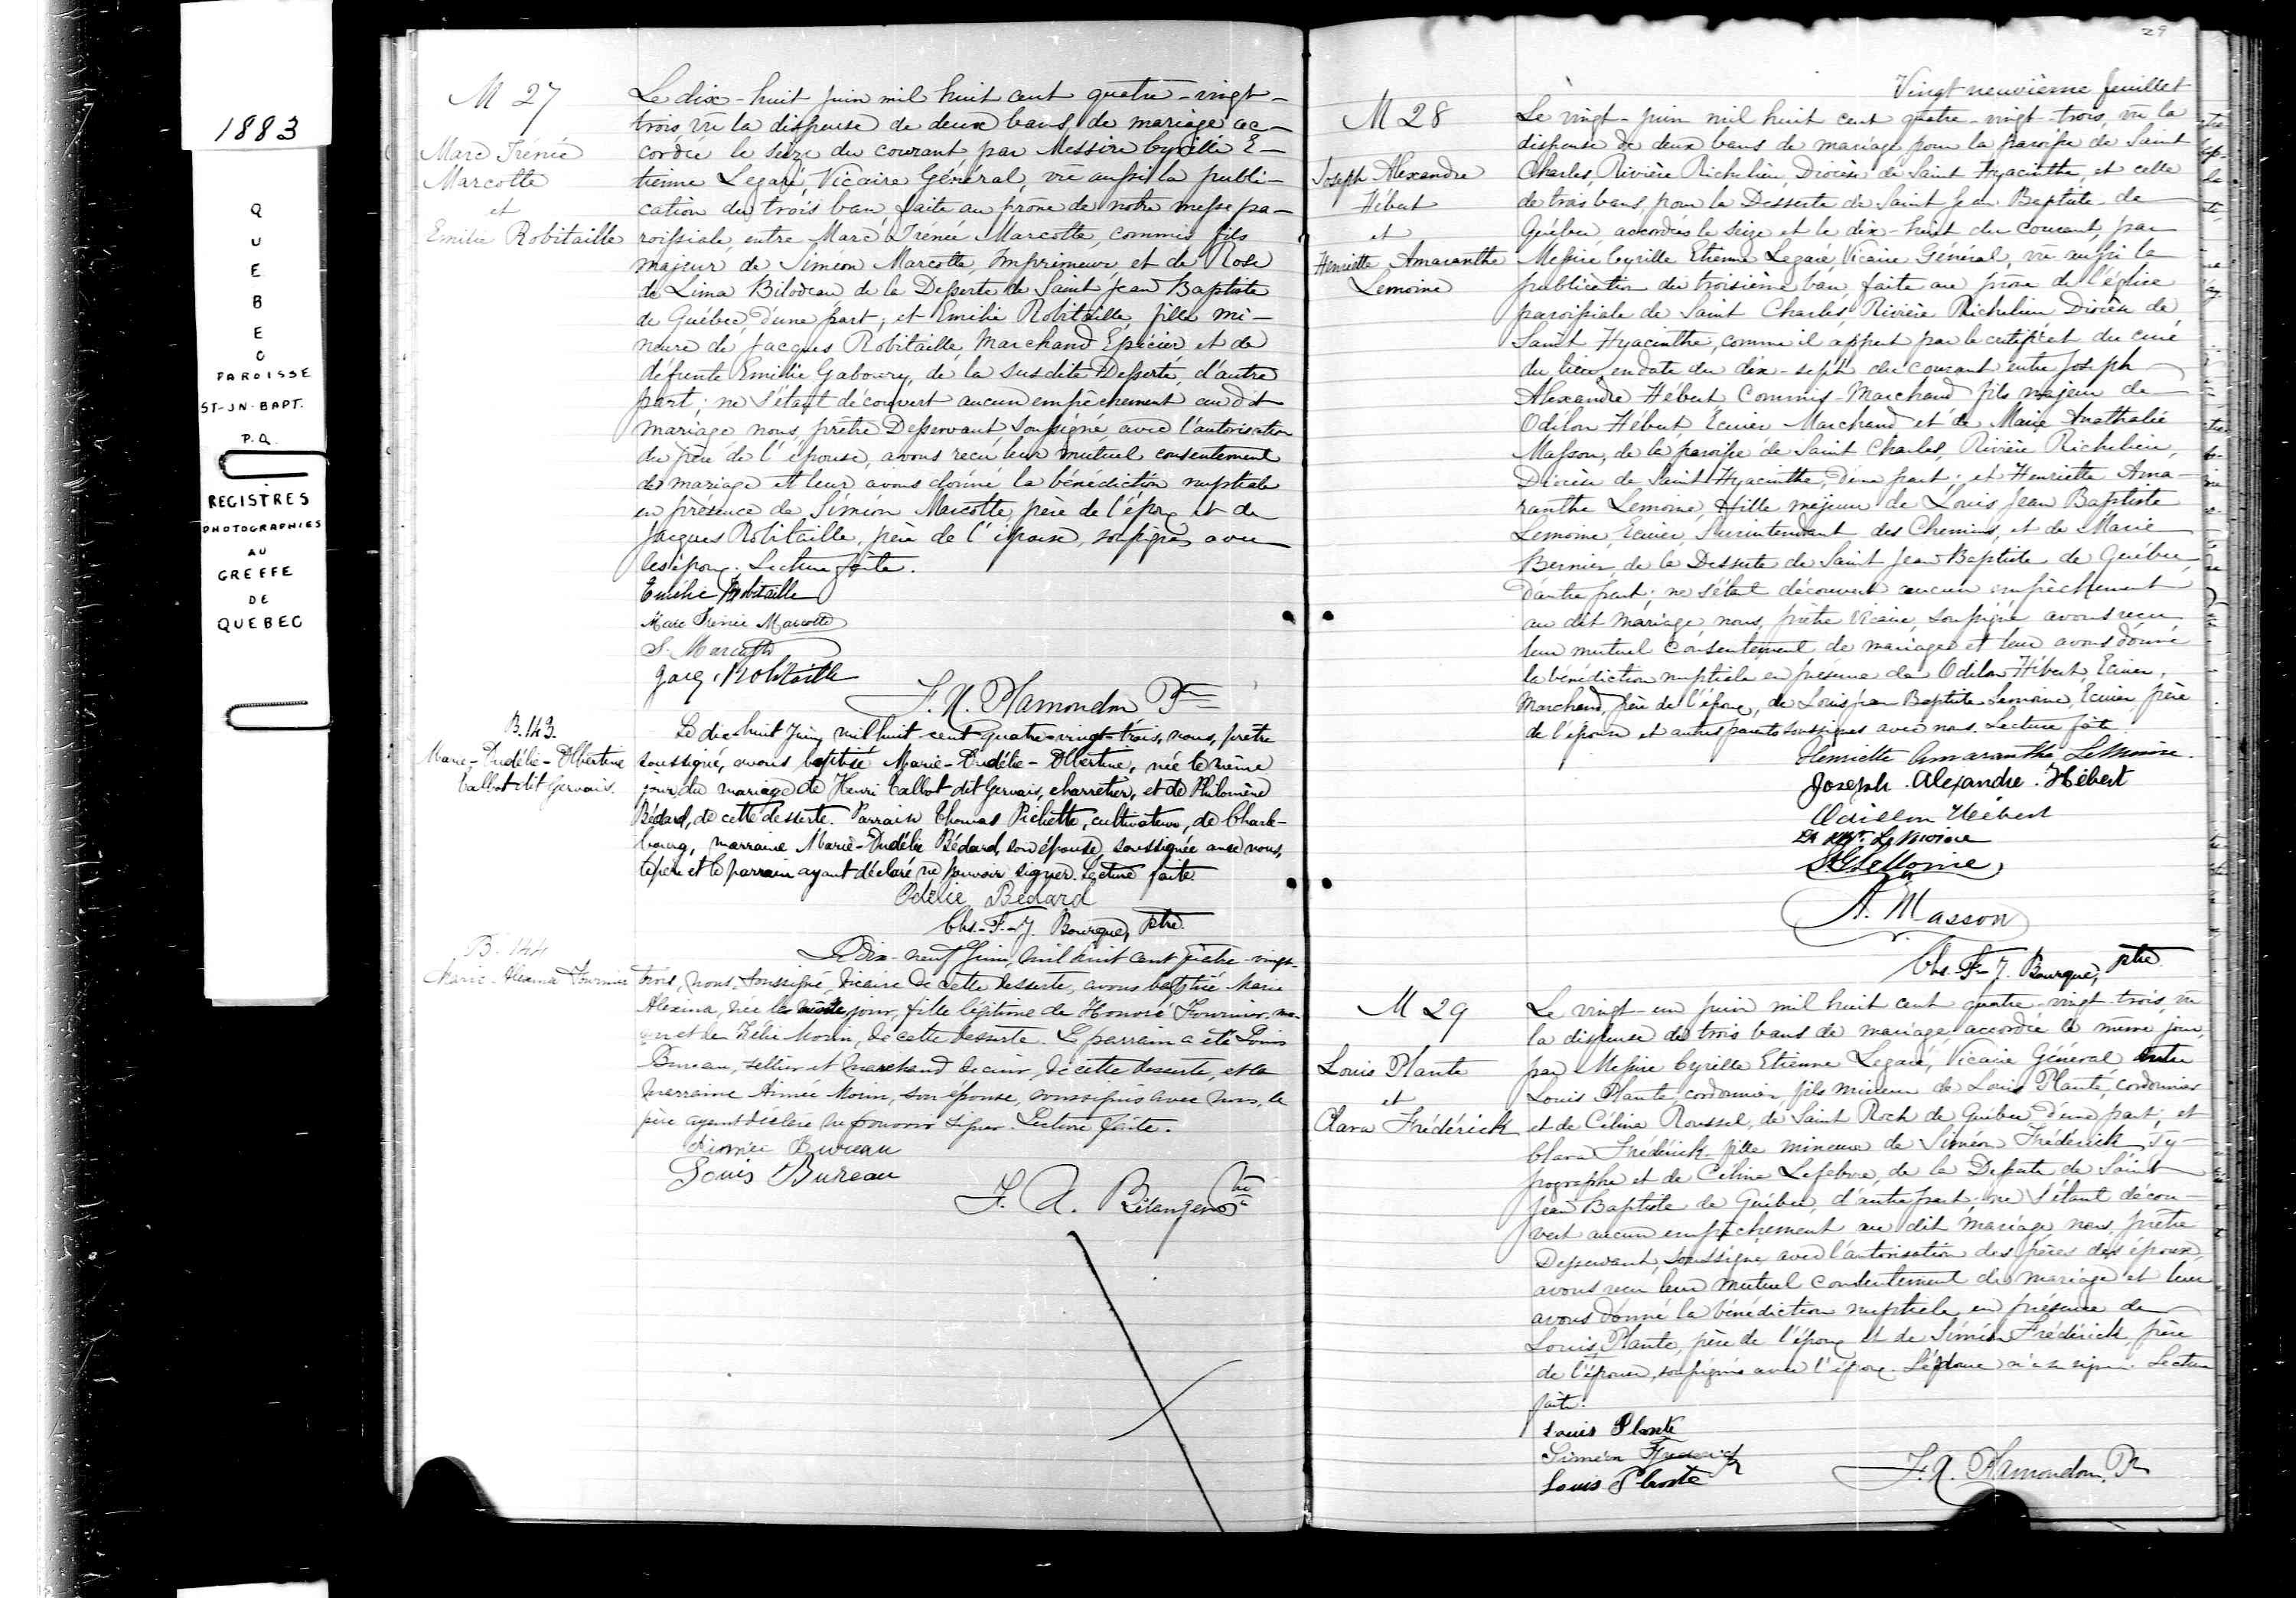 1883
QUEBEC
PAROISSE
ST-JN-BAPT.
P.Q.
REGISTRES
PHOTOGRAPHIES
AU
GREFFE
DE
QUEBEC
M 27
Marc Irénée
Marcotte
et
Emilie Robitaille
Le dix-huit juin mil huit cent quatre-vingt-
trois, vu la dispense de deux bans de mariage ac-
cordée le seize du courant par Messire Cyrille E-
tienne Legaré, Vicaire Général, vu aussi la publi-
cation du trois ban, faite au prône de notre messe pa-
roissiale, entre Marc Irénée Marcotte, commis, fils
majeur de Siméon Marcotte, Imprimeur, et de Rose
de Lima Bilodeau de la Desserte de Saint Jean Baptiste
de Québec, d'une part; et Emilie Robitaille, fille mi-
neure de Jacques Robitaille, Marchand Epicier et de
défunte Emilie Gaboury, de la susdite Desserte, d'autre
part; ne s'étant découvert aucun empêchement au dit
mariage nous, prêtre Desservant soussigné, avec l'autorisation
du père de l'épouse, avons reçu leur mutuel consentement
de mariage et leur avons donné la bénédiction nuptiale
en présence de Siméon Marcotte, père de l'époux et de
Jacques Robitaille, père de l'épouse, soussignés avec
les époux. Lecture faite.
Emilie Robitaille
Marc Irénée Marcotte
S. Marcotte
Jacq. Robitaille
F. X. Plamondon Ptre
B. 143.
Marie-Audélie-Albertine
Talbot dit Gervais.
Le dix-huit Juin, mil huit-cent-quatre-vingt-trois, nous, prêtre
soussigné, avons baptisé Marie-Audélie-Albertine, née le même
jour, du mariage de Henri Talbot dit Gervais, charretier, et de Philomène
Bédard, de cette desserte. Parrain Thomas Pichette, cultivateur, de Charles-
bourg, marraine Marie-Audélie Bédard, son épouse, soussignée avec nous,
le père et le parrain ayant déclaré ne pouvoir signer. Lecture faite.
Odélie Bédard
Chs.-F.-J. Bourque, ptre.
B. 144
Marie Alexina Fournier
Le dix-neuf Juin, mil huit cent quatre-vingt-
trois, nous, soussigné, vicaire de cette desserte, avons baptisé Marie
Alexina, née le même jour, fille légitime de Honoré Fournier,
et de Zélie Morin, de cette desserte. Le parrain a été Louis
Bureau, sellier et marchand de cuir, de cette desserte, et la
marraine Aimée Morin, son épouse, soussignés avec nous, le
père ayant déclaré ne pouvoir signer. Lecture faite.
Aimée Bureau
Louis Bureau
F. X. Bélanger Ptre
29
Vingt neuvième feuillet
M 28
Joseph Alexandre
Hébert
et
Henriette Amaranthe
Lemoine
Le vingt-juin mil huit cent quatre-vingt-trois, vu la
dispense de deux bans de mariage pour la paroisse de Saint
Charles, Rivière Richelieu, Diocèse de Saint Hyacinthe, et celle
de trois bans pour la Desserte de Saint Jean Baptiste de
Québec, accordées le seize et le dix-huit du courant, par
Messire Cyrille Etienne Legaré, Vicaire Général, vu aussi la
publication du troisième ban, faite au prône de l'église
paroissiale de Saint Charles, Rivière Richelieu Diocèse de
Saint Hyacinthe, comme il appert par le certificat du curé
du lieu, en date du dix-sept du courant entre Joseph
Alexandre Hébert Commis-Marchand fils majeur de
Odilon Hébert Ecuier Marchand et de Marie Anathalie
Masson, de la paroisse de Saint Charles, Rivière Richelieu,
Diocèse de Saint Hyacinthe, d'une part; et Henriette Ama-
ranthe Lemoine, fille majeure de Louis Jean Baptiste
Lemoine, Ecuier, Surintendant des Chemins, et de Marie
Bernier de la Desserte de Saint Jean Baptiste de Québec,
d'autre part; ne s'étant découvert aucun empêchement
au dit mariage, nous, prêtre Vicaire, soussigné avons reçu
leur mutuel consentement de mariage et leur avons donné
la bénédiction nuptiale en présence de Odilon Hébert, Ecuier,
Marchand, père de l'époux, de Louis Jean Baptiste Lemoine, Ecuier, père
de l'épouse et autres parents soussignés avec nous. Lecture faite.
Henriette Amaranthe LeMoine.
Joseph. Alexandre. Hébert
Odillon Hébert
LeMoine
LeMoine
A. Masson
Chs.-F.-J. Bourque, ptre.
M 29
Louis Plante
et
Clara Frédérick
Le vingt-un juin mil huit cent quatre-vingt-trois, vu
la dispense de trois bans de mariage accordée le même jour,
par Messire Cyrille Etienne Legaré, Vicaire Général, entre
Louis Plante, cordonnier, fils mineur de Louis Plante, cordonnier
et de Célina Roussel, de Saint Roch de Québec d'une part; et
Clara Frédérick fille mineure de Siméon Frédérick, Ty-
pographe et de Céline Lefebvre, de la Desserte de Saint
Jean Baptiste de Québec, d'autre part; ne s'étant décou-
vert aucun empêchement au dit mariage, nous, prêtre
Desservant, soussigné avec l'autorisation des pères des époux,
avons reçu leur mutuel consentement de mariage et leur
avons donné la bénédiction nuptiale, en présence de
Louis Plante, père de l'époux et de Siméon Frédérick, père
de l'épouse, soussignés avec l'époux. L'épouse n'a su signer. Lecture
faite.
Louis Plante
Siméon Frederick
Louis Plante
F. X. Plamondon Ptre